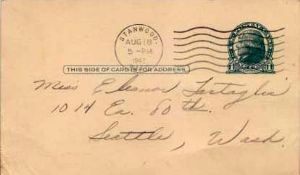 STANWOOD,
AUG 18
5 - PM
1947
THIS SIDE OF CARD IS FOR ADDRESS
Miss Eleanor Tartaglia
1014 Ea. 80th.
Seattle, Wash.